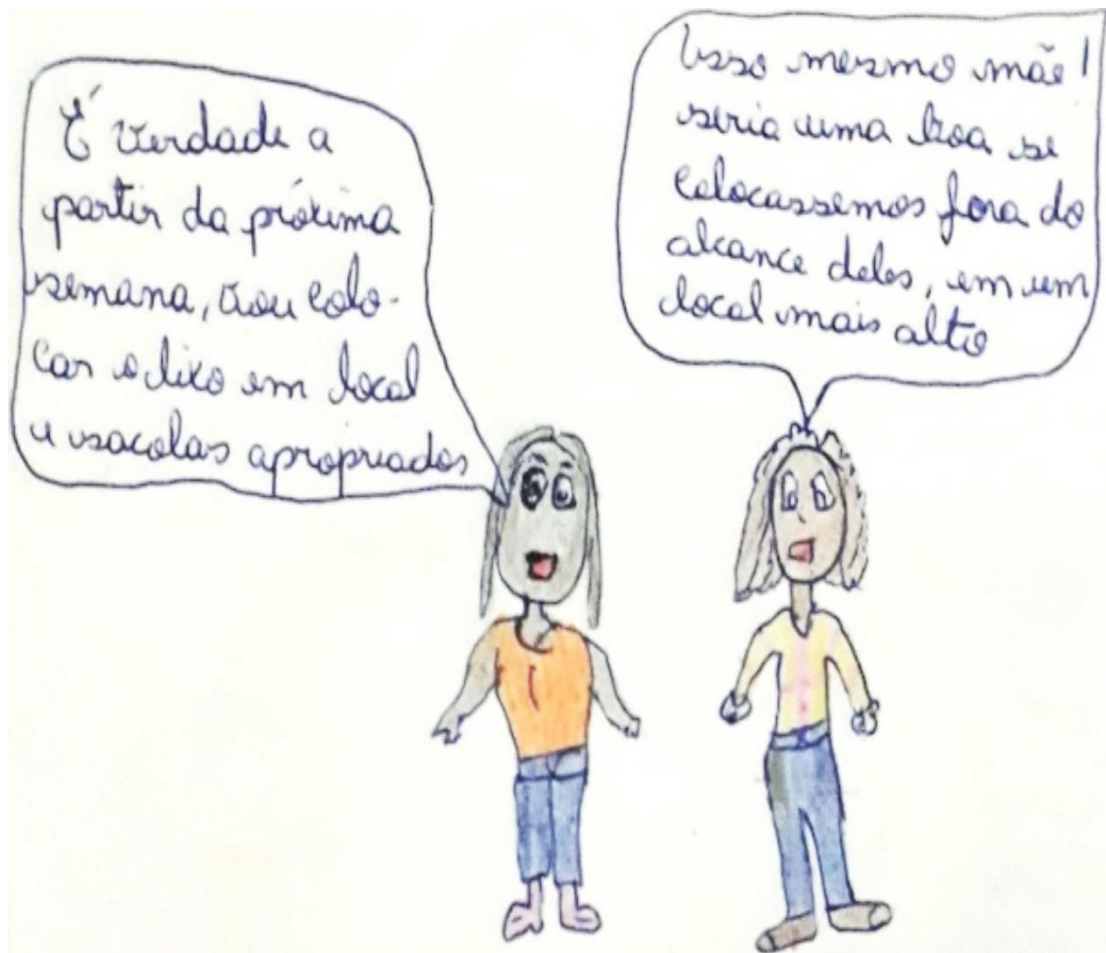 É verdade a
partir da próxima
semana, vou colo-
car o lixo em local
e sacolas apropriados
Isso mesmo mãe!
seria uma boa se
colocassemos fora do
alcance deles, em um
local mais alto